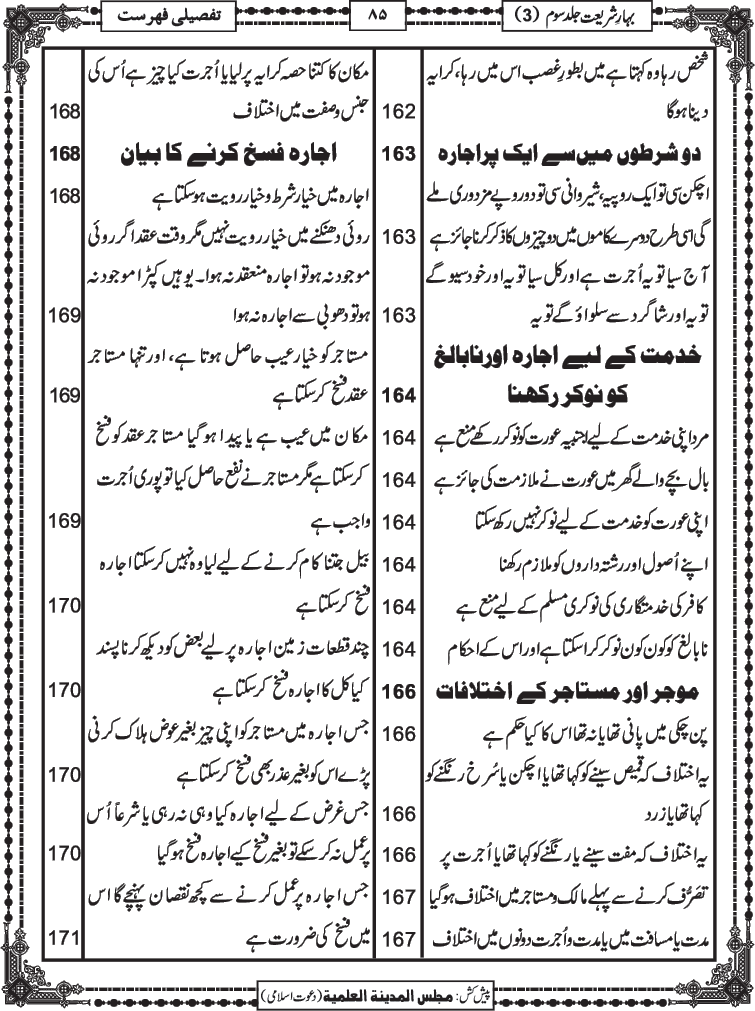 بہارِ شریعت جلد سوم (3)
۸۵
تفصیلی فہرست
شخص رہا وہ کہتا ہے میں بطورِ غصب اس میں رہا، کرایہ
دینا ہوگا 162
دو شرطوں میں سے ایک پر اجارہ 163
اچکن سی تو ایک روپیہ، شیروانی سی تو دو روپے مزدوری ملے
گی اسی طرح دوسرے کاموں میں دو چیزوں کا ذکر کرنا جائز ہے 163
آج سیا تو یہ اُجرت ہے اور کل سیا تو یہ اور خود سیو گے
تو یہ اور شاگرد سے سلواؤ گے تو یہ 163
خدمت کے لیے اجارہ اور نابالغ
کو نوکر رکھنا 164
مرد اپنی خدمت کے لیے اجنبیہ عورت کو نوکر رکھے منع ہے 164
بال بچے والے گھر میں عورت نے ملازمت کی جائز ہے 164
اپنی عورت کو خدمت کے لیے نوکر نہیں رکھ سکتا 164
اپنے اُصول اور رشتہ داروں کو ملازم رکھنا 164
کافر کی خدمتگاری کی نوکری مسلم کے لیے منع ہے 164
نابالغ کو کون کون نوکر کرا سکتا ہے اور اس کے احکام 164
موجر اور مستاجر کے اختلافات 166
پن چکی میں پانی تھا یا نہ تھا اس کا کیا حکم ہے 166
یہ اختلاف کہ قمیص سینے کو کہا تھا یا اچکن یا سُرخ رنگنے کو
کہا تھا یا زرد 166
یہ اختلاف کہ مفت سینے یا رنگنے کو کہا تھا یا اُجرت پر 166
تصرُّف کرنے سے پہلے مالک و مستاجر میں اختلاف ہوگیا 167
مدت یا مسافت میں یا مدت و اُجرت دونوں میں اختلاف 167
مکان کا کتنا حصہ کرایہ پر لیا یا اُجرت کیا چیز ہے اُس کی
جنس وصفت میں اختلاف 168
اجارہ فسخ کرنے کا بیان 168
اجارہ میں خیار شرط و خیار رویت ہوسکتا ہے 168
روئی دھنکنے میں خیار رویت نہیں مگر وقت عقد اگر روئی
موجود نہ ہو تو اجارہ منعقد نہ ہوا۔ یوہیں کپڑا موجود نہ
ہو تو دھوبی سے اجارہ نہ ہوا 169
مستاجر کو خیار عیب حاصل ہوتا ہے، اور تنہا مستاجر
عقد فسخ کرسکتا ہے 169
مکان میں عیب ہے یا پیدا ہوگیا مستاجر عقد کو فسخ
کرسکتا ہے مگر مستاجر نے نفع حاصل کیا تو پوری اُجرت
واجب ہے 169
بیل جتنا کام کرنے کے لیے لیا وہ نہیں کرسکتا اجارہ
فسخ کرسکتا ہے 170
چند قطعات زمین اجارہ پر لیے بعض کو دیکھ کر ناپسند
کیا کل کا اجارہ فسخ کرسکتا ہے 170
جس اجارہ میں مستاجر کو اپنی چیز بغیر عوض ہلاک کرنی
پڑے اس کو بغیر عذر بھی فسخ کرسکتا ہے 170
جس غرض کے لیے اجارہ کیا وہی نہ رہی یا شرعاً اُس
پر عمل نہ کرسکے تو بغیر فسخ کیے اجارہ فسخ ہوگیا 170
جس اجارہ پر عمل کرنے سے کچھ نقصان پہنچے گا اس
میں فسخ کی ضرورت ہے 171
پیش کش: مجلس المدینۃ العلمیۃ (دعوت اسلامی)